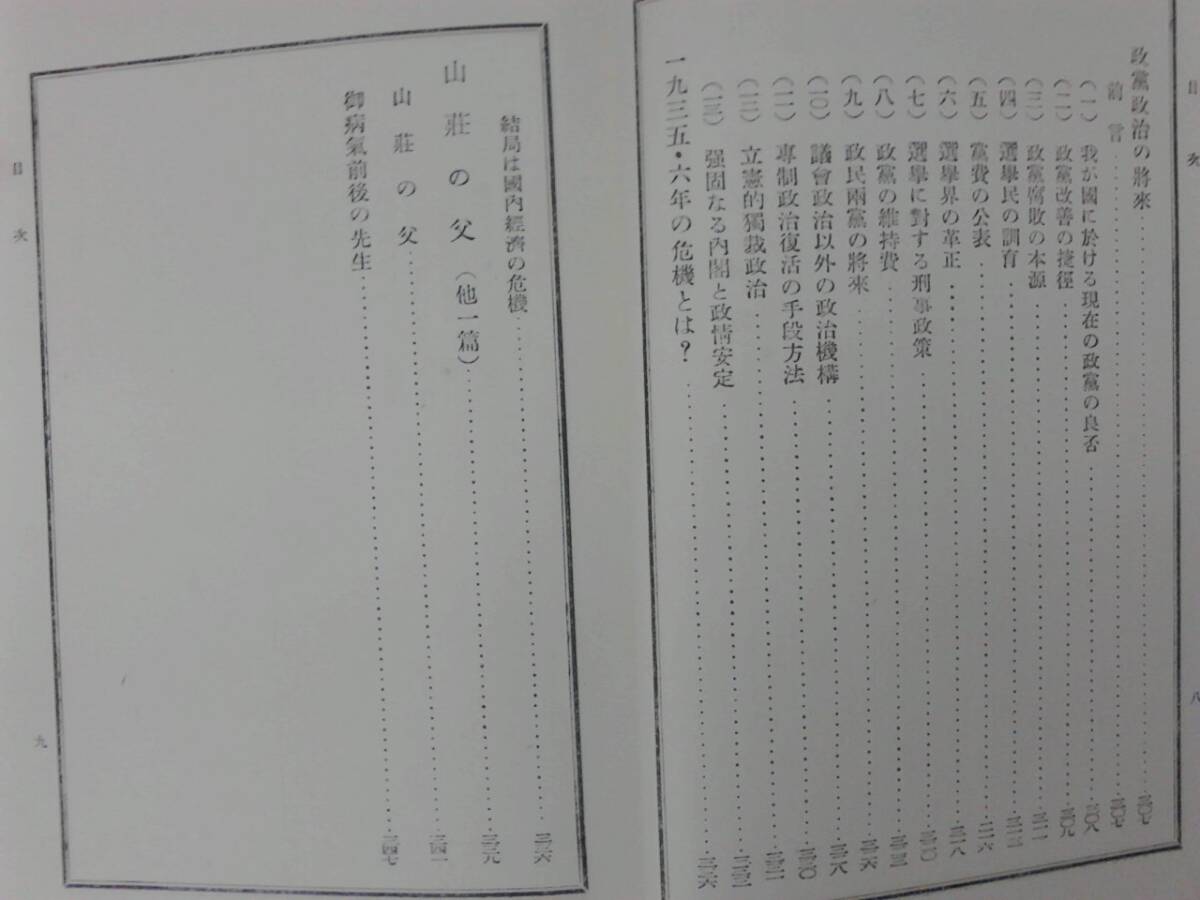 目次
八
政黨政治の將來……二〇七
前言……二〇七
(一) 我が國に於ける現在の政黨の良否……二〇八
(二) 政黨改善の捷徑……二〇九
(三) 政黨腐敗の本源……二一一
(四) 選擧民の訓育……二一三
(五) 黨費の公表……二一六
(六) 選擧界の革正……二一八
(七) 選擧に對する刑事政策……二二〇
(八) 政黨の維持費……二二三
(九) 政民兩黨の將來……二二六
(一〇) 議會政治以外の政治機構……二二八
(一一) 專制政治復活の手段方法……二三〇
(一二) 立憲的獨裁政治……
(一三) 强固なる內閣と政情安定……
一九三五・六年の危機とは？……二三六
結局は國內經濟の危機……二三六
山莊の父(他一篇)……二三九
山莊の父……二四一
御病氣前後の先生……二四七
目次
九